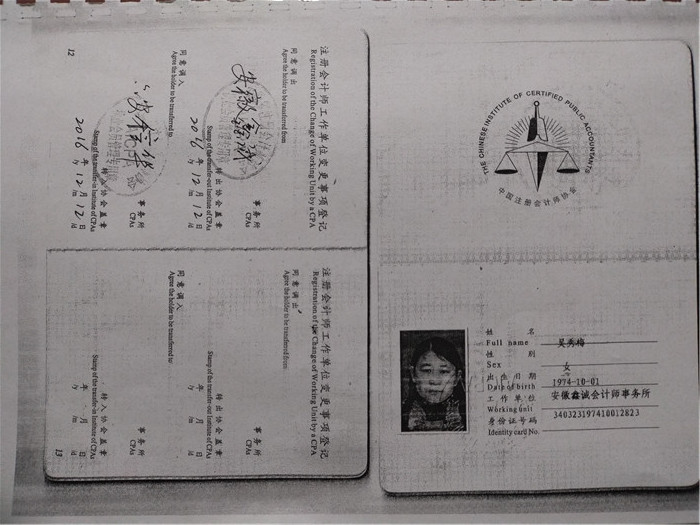 THE CHINESE INSTITUTE OF CERTIFIED PUBLIC ACCOUNTANTS
中国注册会计师协会
姓 名
Full name 吴秀梅
性 别
Sex 女
出 生 日 期
Date of birth 1974-10-01
工 作 单 位
Working unit 安徽鑫诚会计师事务所
身份证号码
Identity card No. 340323197410012823
注册会计师工作单位变更事项登记
Registration of the Change of Working Unit by a CPA
同意调出
Agree the holder to be transferred from
事务所
CPAs
转出协会盖章
Stamp of the transfer-out Institute of CPAs
2016 年 12 月 12 日
/y /m /d
同意调入
Agree the holder to be transferred to
事务所
CPAs
转入协会盖章
Stamp of the transfer-in Institute of CPAs
2016 年 12 月 12 日
/y /m /d
12
注册会计师工作单位变更事项登记
Registration of the Change of Working Unit by a CPA
同意调出
Agree the holder to be transferred from
事务所
CPAs
转出协会盖章
Stamp of the transfer-out Institute of CPAs
年 月 日
/y /m /d
同意调入
Agree the holder to be transferred to
事务所
CPAs
转入协会盖章
Stamp of the transfer-in Institute of CPAs
年 月 日
/y /m /d
13